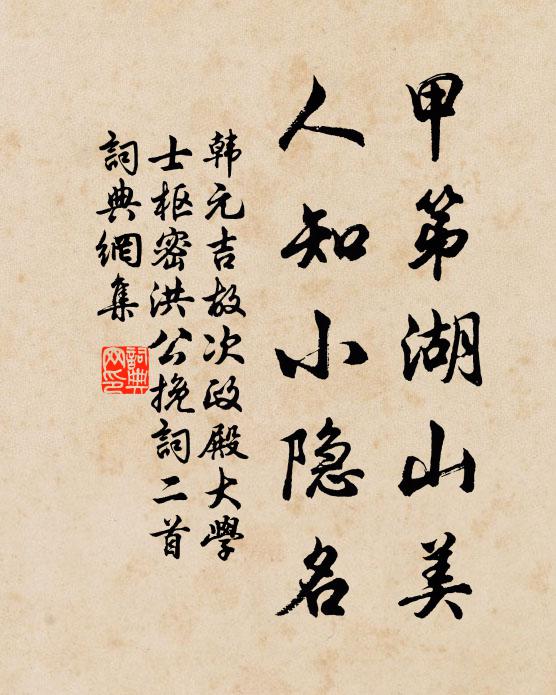 甲第湖山美
人知小隐名
韩元吉故次政殿大學
士枢密洪公挽詞二首
詞典網集
詞典
网印